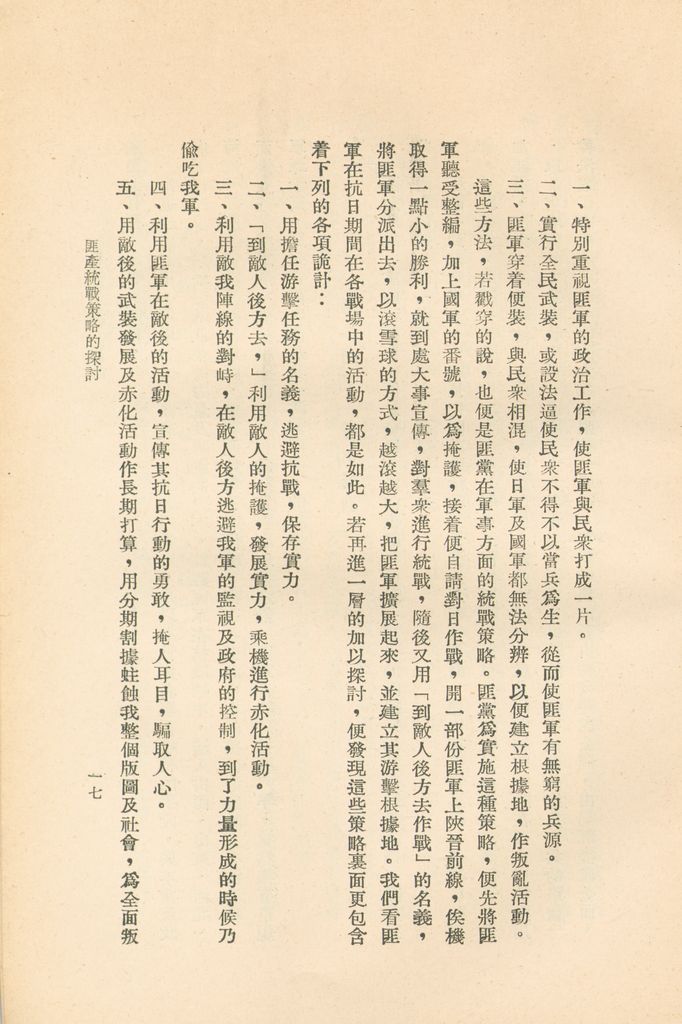 一、特別重視匪軍的政治工作，使匪軍與民衆打成一片。
二、實行全民武裝，或設法逼使民衆不得不以當兵爲生，從而使匪軍有無窮的兵源。
三、匪軍穿着便裝，與民衆相混，使日軍及國軍都無法分辨，以便建立根據地，作叛亂活動。
這些方法，若戳穿的說，也便是匪黨在軍事方面的統戰策略。匪黨爲實施這種策略，便先將匪
軍聽受整編，加上國軍的番號，以爲掩護，接着便自請對日作戰，開一部份匪軍上陜晉前線，俟機
取得一點小的勝利，就到處大事宣傳，對羣衆進行統戰，隨後又用「到敵人後方去作戰」的名義，
將匪軍分派出去，以滾雪球的方式，越滾越大，把匪軍擴展起來，並建立其游擊根據地。我們看匪
軍在抗日期間在各戰場中的活動，都是如此。若再進一層的加以探討，便發現這些策略裏面更包含
着下列的各項詭計：
一、用擔任游擊任務的名義，逃避抗戰，保存實力。
二、「到敵人後方去，」利用敵人的掩護，發展實力，乘機進行赤化活動。
三、利用敵我陣線的對峙，在敵人後方逃避我軍的監視及政府的控制，到了力量形成的時候乃
偸吃我軍。
四、利用匪軍在敵後的活動，宣傳其抗日行動的勇敢，掩人耳目，騙取人心。
五、用敵後的武裝發展及赤化活動作長期打算，用分期割據蛀蝕我整個版圖及社會，爲全面叛
匪產統戰策略的探討
一七